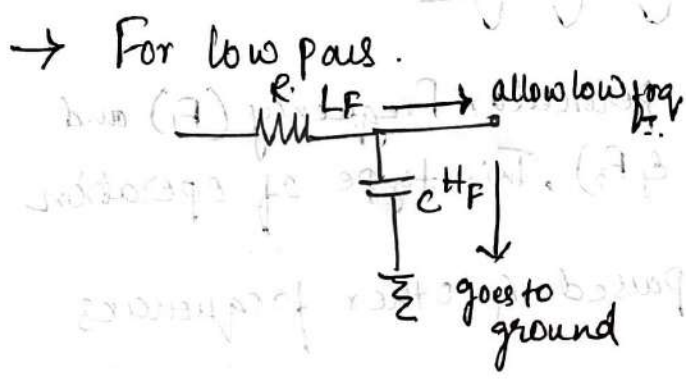 → For low pass.
R. LF → allow low frq.
C HF
goes to
ground